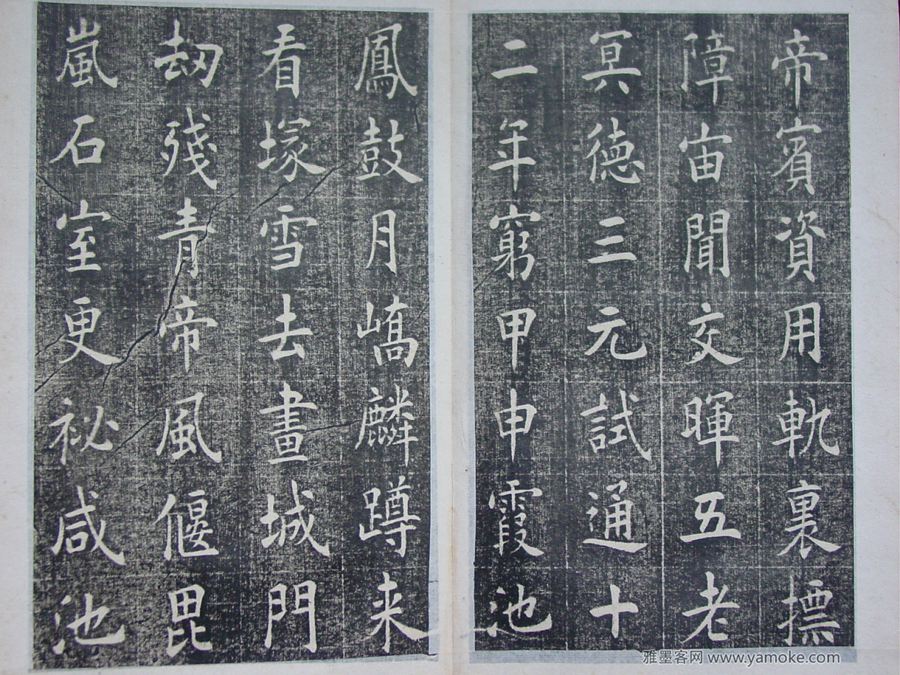 帝賓資用軌裏摽
障宙聞交暉五老
冥德三元試通十
二年窮甲申霞池
鳳鼓月嶠麟蹲来
看塚雪去畫城門
劫殘青帝風偃毘
嵐石室更祕咸池
雅墨客网 www.yamoke.com